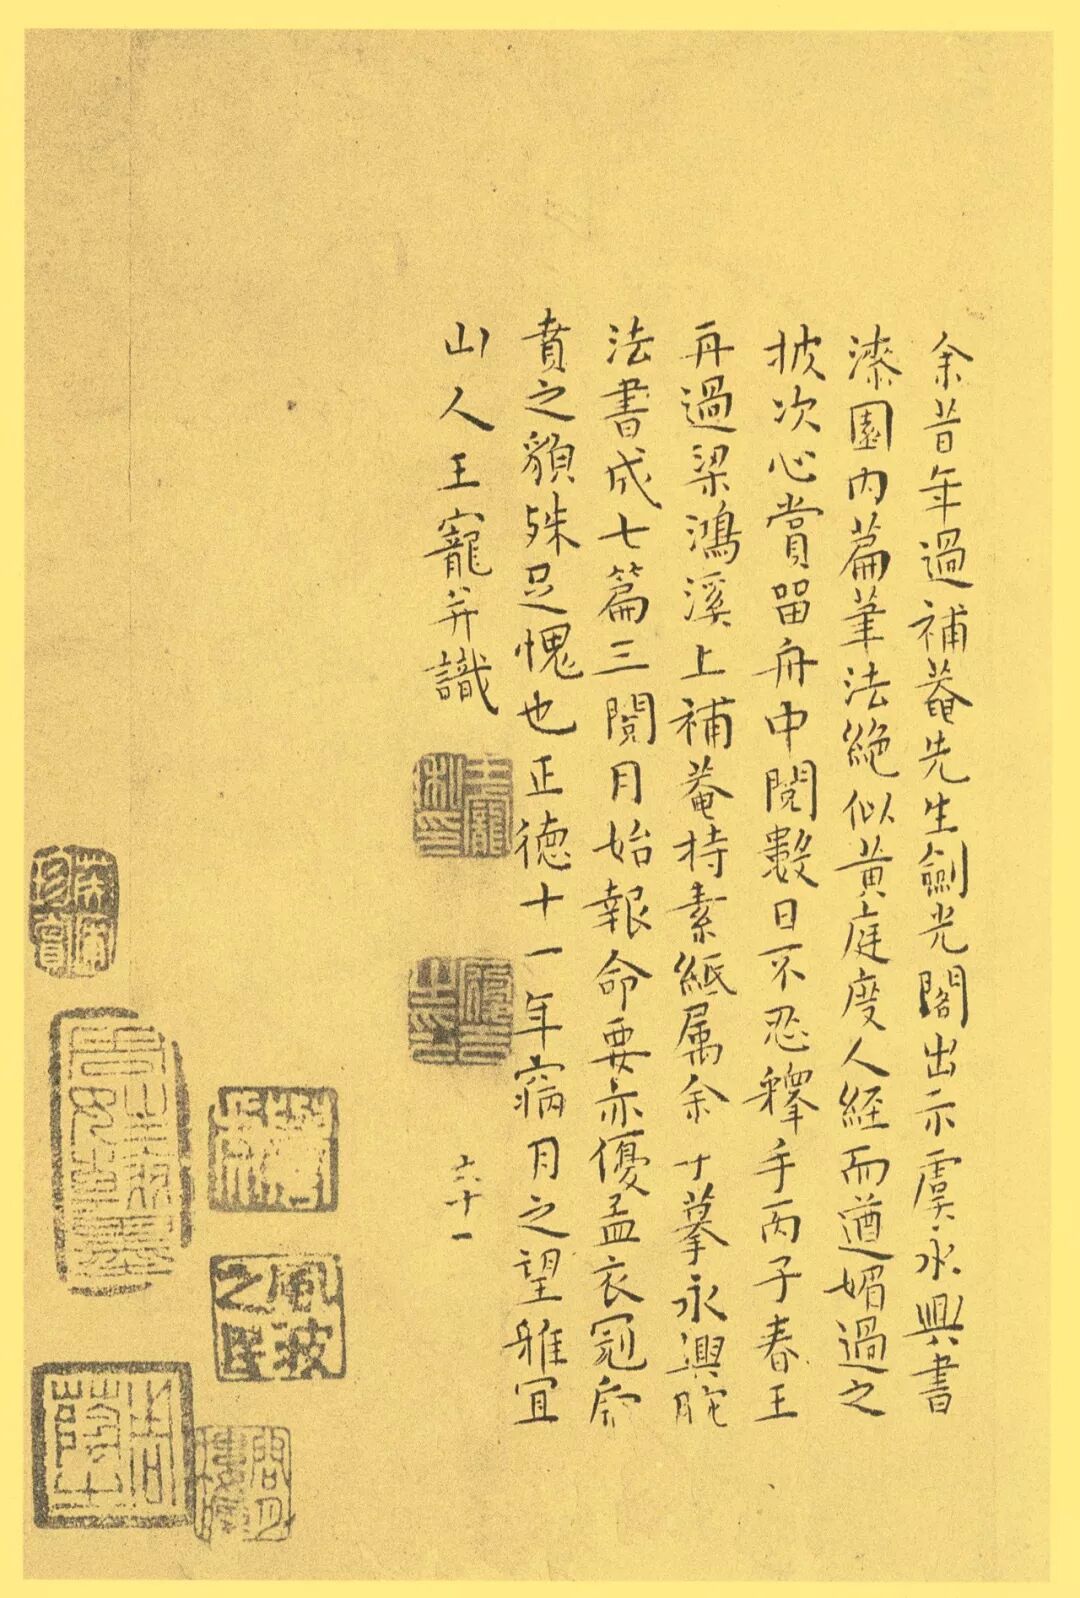 余昔年過補菴先生劍光閣出示虞永興書
漆園內篇筆法絕似黃庭度人經而遒媚過之
披次心賞留舟中閱數日不忍釋手丙子春王
再過梁鴻溪上補菴持素紙屬余寸摹永興腕
法書成七篇三閱月始報命要亦優孟衣冠虎
賁之貌殊足愧也正德十一年寎月之望雅宜
山人王寵并識
六十一
王寵私印
履吉之印
風波之民